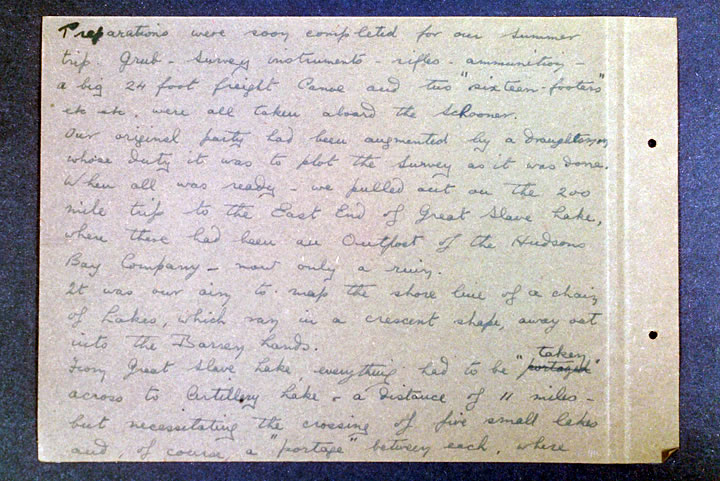 Preparations were soon completed for our summer
trip. Grub - survey instruments - rifles - ammunition -
a big 24 foot freight Canoe and two "sixteen-footers"
etc etc. were all taken aboard the Schooner.
Our original party had been augmented by a draughtsman
whose duty it was to plot the survey as it was done.
When all was ready - we pulled out on the 200
mile trip to the East End of Great Slave Lake,
where there had been an Outpost of the Hudsons
Bay Company - now only a ruin.
It was our aim to map the shore line of a chain
of Lakes, which ran in a crescent shape, away out
into the Barren Lands.
taken
From Great Slave Lake, everything had to be "portaged"
across to Artillery Lake - a distance of 11 miles -
but necessitating the crossing of five small lakes
and, of course, a "portage" between each, where